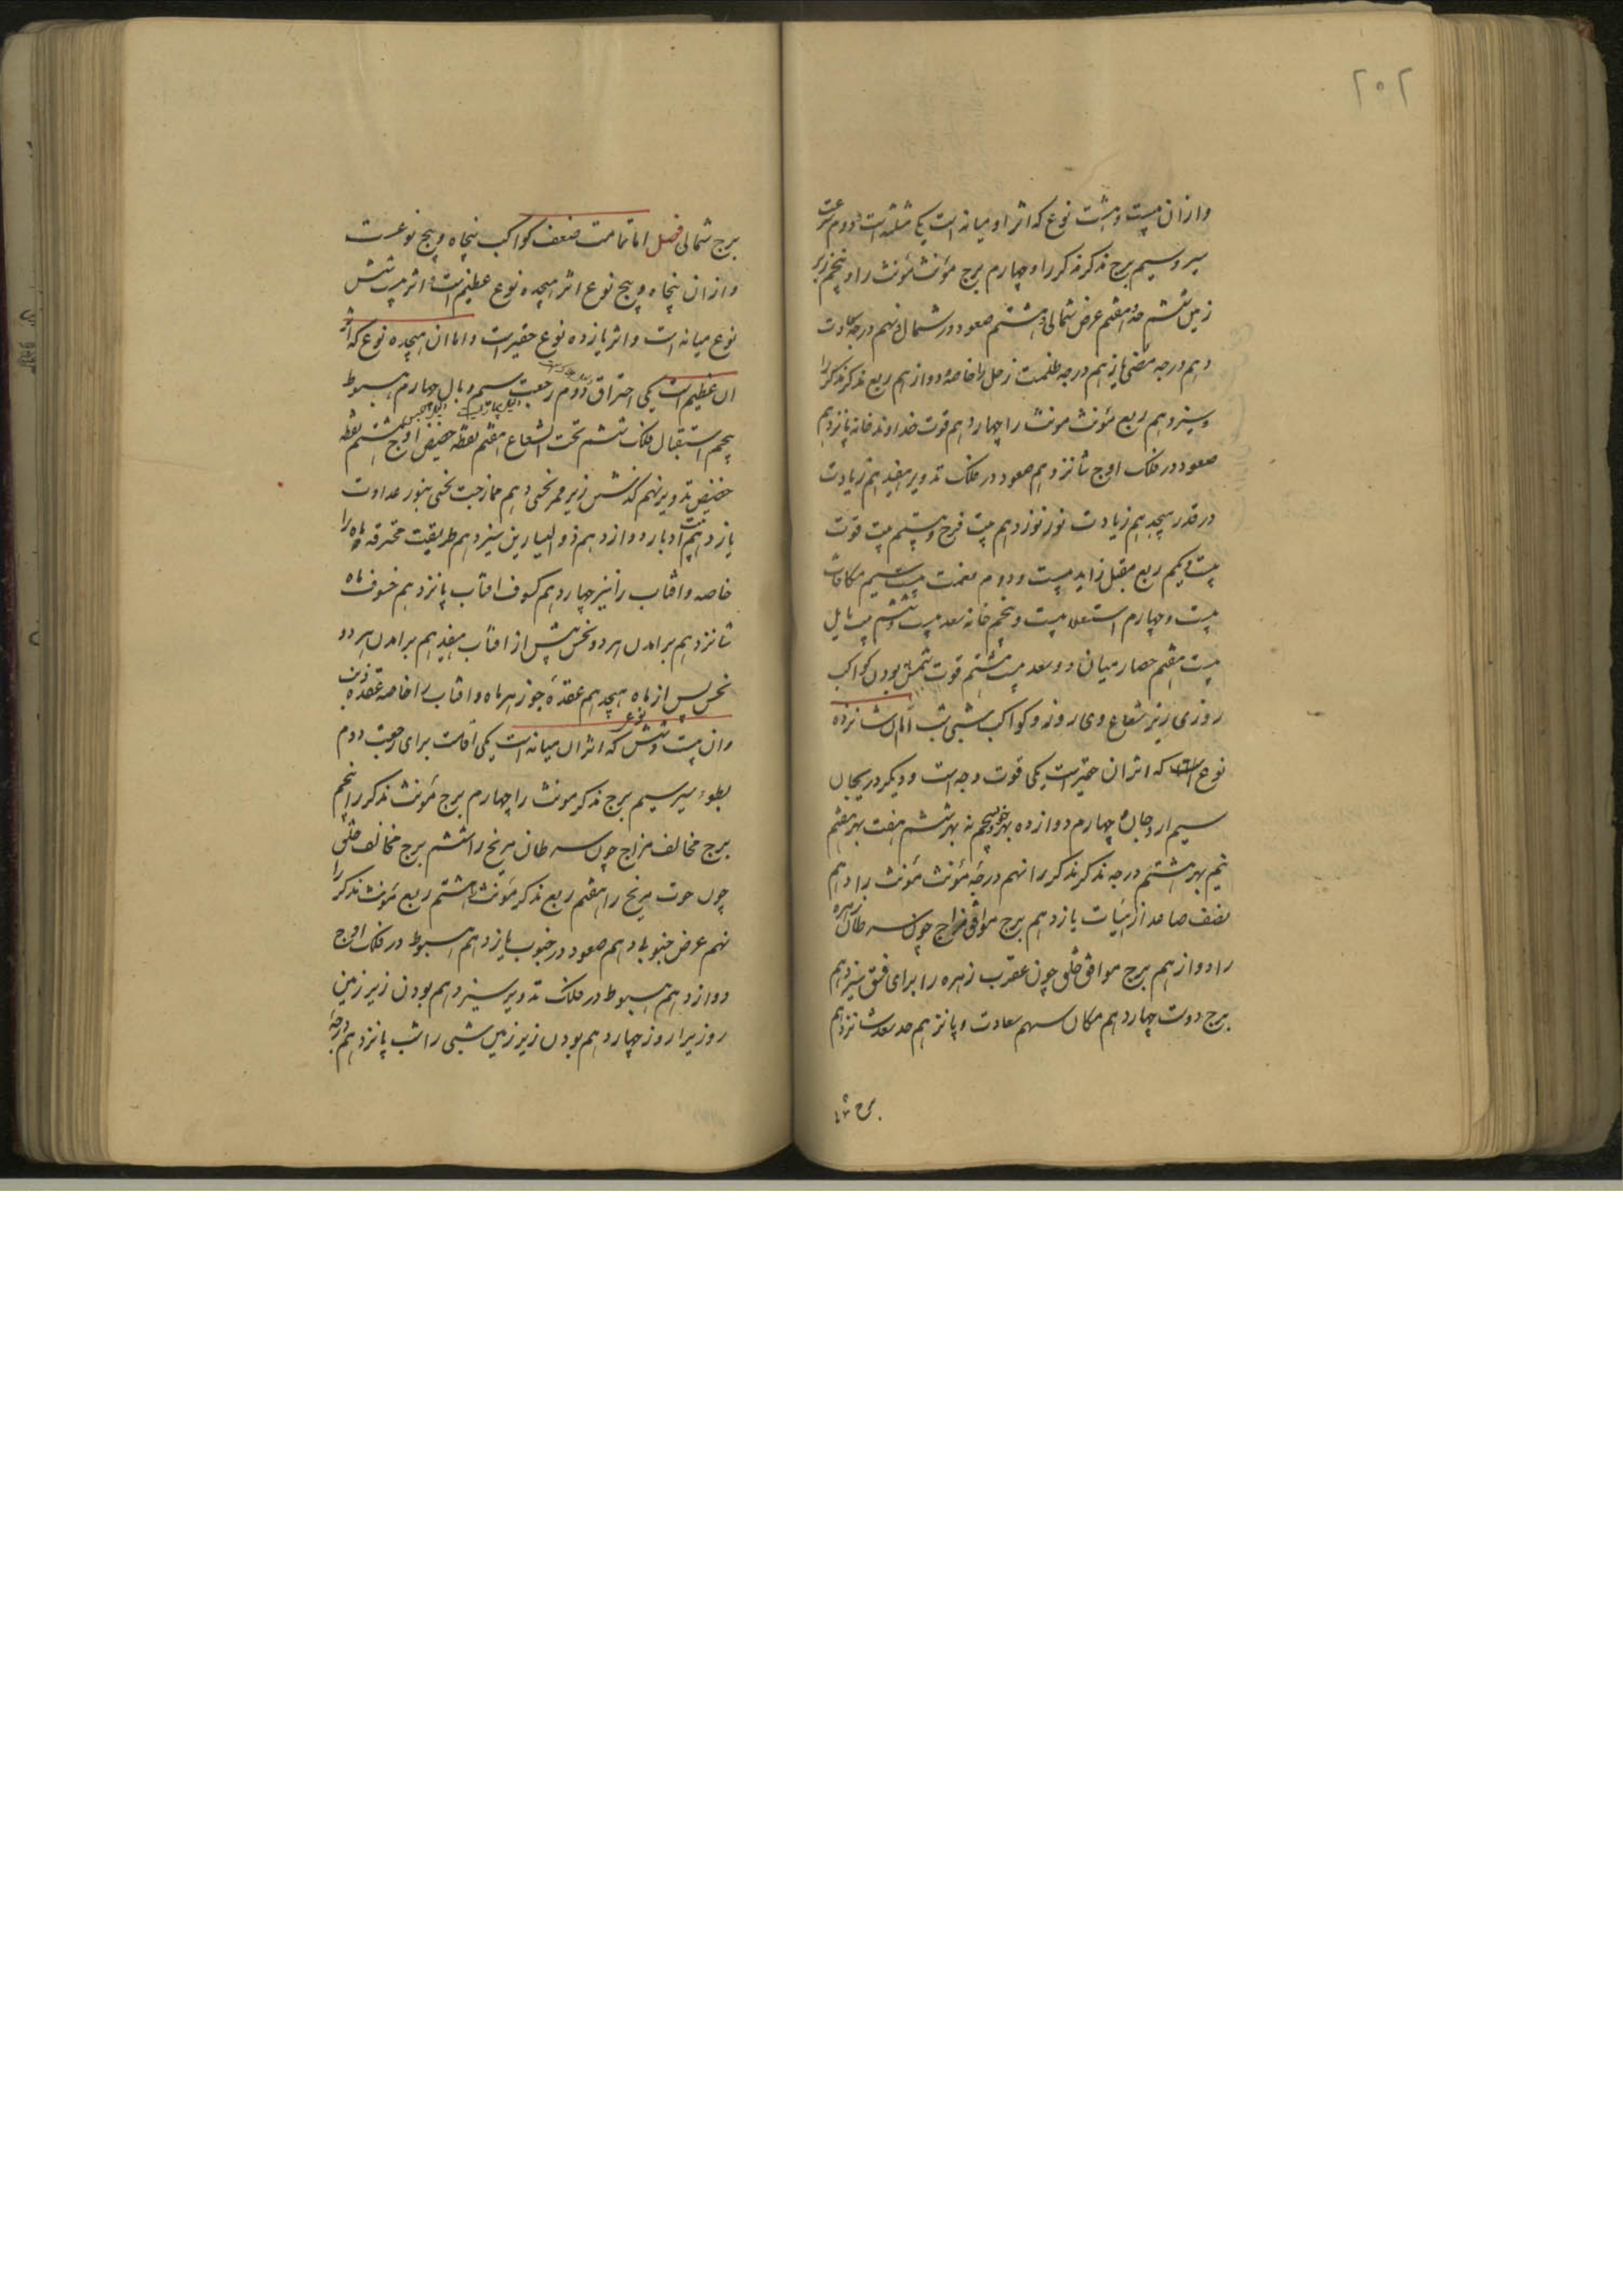 ۲۰۲
وازان بیست و هشت نوع که اثر او میانه است یکی مثلثه است و دوم سرعت
سیر و سیم برج مذکر مذکر را و چهارم برج مؤنث مؤنث را و پنجم زبر
زمین ششم حد هفتم عرض شمالی هشتم صعود در شمال نهم درجه سعادت
دهم درجه مضی یازدهم درجه ظلمت زحل را خاصه دوازدهم ربع مذکر مذکر را
و سیزدهم ربع مؤنث مونث را چهاردهم قوت خداوند خانه پانزدهم
صعود در فلک اوج شانزدهم صعود در فلک تدویر هفدهم زیادت
در قدر هیجدهم زیادت نور نوزدهم بیت فرح و بیستم بیت قوت
بیست و یکم ربع مقبل زاید بیست و دوم نعمت بیست سیم مکافات
بیست و چهارم استعلا بیست و پنجم خانه سعد بیست و ششم بیت مایل
بیست هفتم حصار میان دو سعد بیست هشتم قوت شمس بودن کواکب
روزی زیر شعاع وی روز و کواکب شبی شب اما ان شانزده
نوع که اثر ان حقیرست یکی قوت وجه است و دیکر دریجان
سیم اردجان چهارم دوازده بهر خود پنجم نه بهر ششم هفت بهر هفتم
نیم بهر هشتم درجه مذکر مذکر را نهم درجه مؤنث مؤنث را دهم
نصف صاعد از یازدهم برج موافق مزاج چون سرطان زهره
را دوازدهم برج موافق خلق چون عقرب زهره را برای فسق سیزدهم
برج دوست چهاردهم مکان سهم سعادت و پانزدهم حد سعد شانزدهم
برج
برج شمالی فصل اما تمامت ضعف کواکب پنجاه و پنج نوعست
وازان پنجاه و پنج نوع اثر هیجده نوع عظیم است و اثر بیست شش
نوع میانه است و اثر یازده نوع حقیرست و اما ان هیجده نوع که اثر
ان عظیم است یکی احتراق دوم رجعت سیم وبال چهارم هبوط
پنجم استقبال فلک ششم تحت الشعاع هفتم نقطه حضیض اوج هشتم نقطه
حضیض تدویر نهم کذشتن زیر ممر نحسی دهم ممازجت نحسی بنور عداوت
یازدهم بیت ادبار دوازدهم ذو الیسارین سیزدهم طریقت محترقه ماه را
خاصه و افتاب را نیز چهاردهم کسوف افتاب پانزدهم خسوف ماه
شانزدهم برامدن هر دو نحس پیش از افتاب هفدهم برامدن هر دو
نحس پس از ماه هیجدهم عقده جوزهر ماه و افتاب را خاصه عقده ذنب
وان بیست و شش نوع که اثر ان میانه است یکی اقامت برای رجعت دوم
بطوء سیر سیم برج مذکر مونث را چهارم برج مؤنث مذکر را پنجم
برج مخالف مزاج چون سرطان مریخ را ششم برج مخالف خلق
چون حوت مریخ را هفتم ربع مذکر مؤنث را هشتم ربع مؤنث مذکر را
نهم عرض جنوبی دهم صعود در جنوب یازدهم هبوط در فلک اوج
دوازدهم هبوط در فلک تدویر سیزدهم بودن زیر زمین
روزی را روز چهاردهم بودن زیر زمین شبی را شب پانزدهم درجه